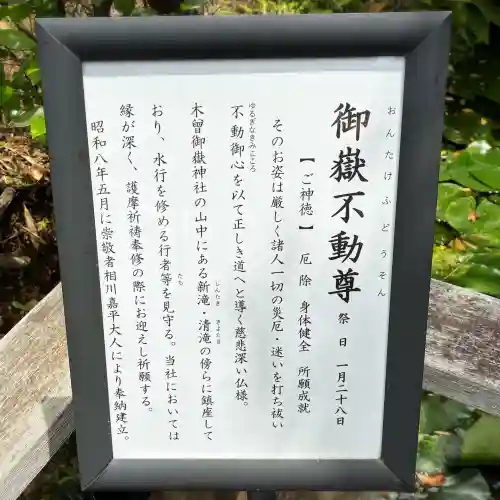 おんたけふどうそん
御嶽不動尊 祭日 一月二十八日
【ご神徳】 厄除 身体健全 所願成就
そのお姿は厳しく諸人一切の災厄・迷いを打ち祓い
ゆるぎなきみこころ
不動御心を以て正しき道へと導く慈悲深い仏様。
しんたき きよたき
木曽御嶽神社の山中にある新滝・清滝の傍らに鎮座して
たち
おり、水行を修める行者等を見守る。当社においては
縁が深く、護摩祈祷奉修の際にお迎えし祈願する。
昭和八年五月に崇敬者相川嘉平大人により奉納建立。